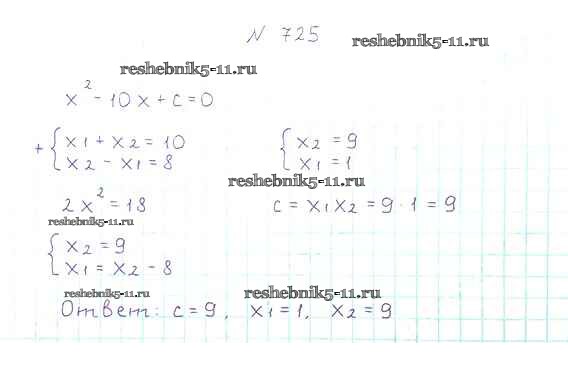 N 725
reshebnik5-11.ru
reshebnik5-11.ru
x² - 10x + c = 0
+ { x1 + x2 = 10
x2 - x1 = 8
{ x2 = 9
x1 = 1
reshebnik5-11.ru
2x² = 18
c = x1x2 = 9 · 1 = 9
reshebnik5-11.ru
{ x2 = 9
x1 = x2 - 8
reshebnik5-11.ru
reshebnik5-11.ru
Ответ: c = 9, x1 = 1, x2 = 9